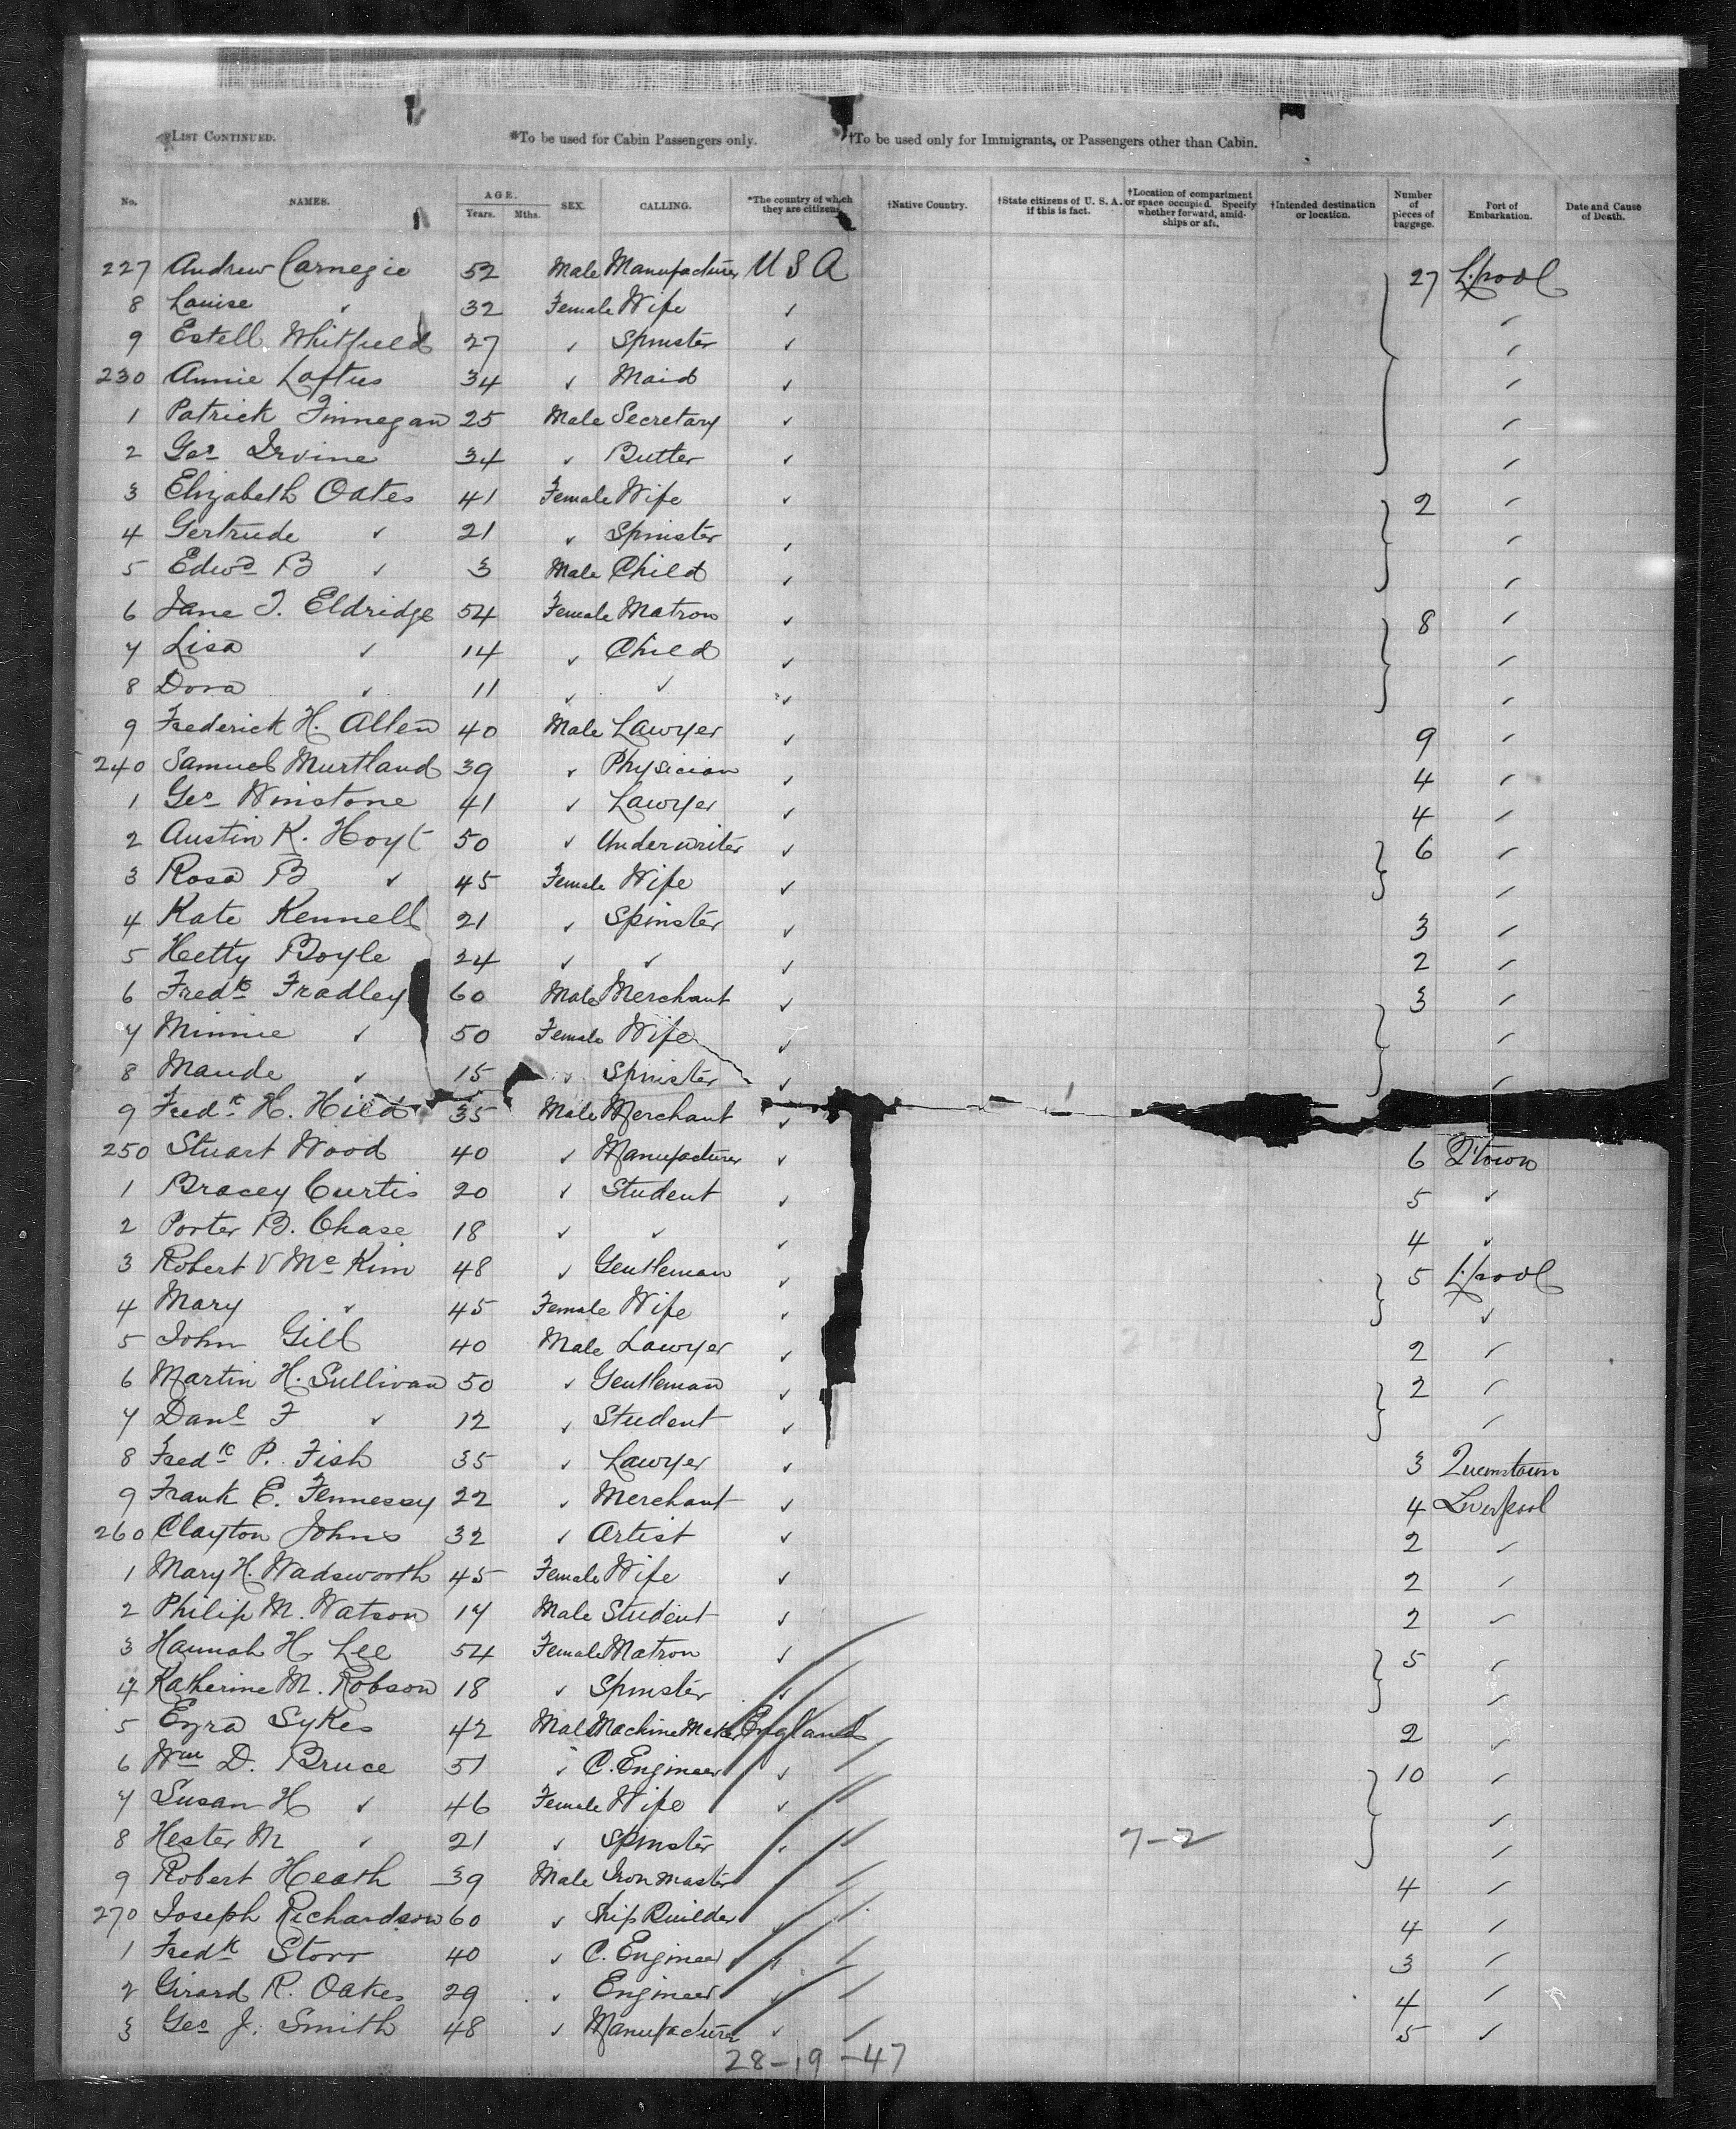 LIST CONTINUED. *To be used for Cabin Passengers only. †To be used only for Immigrants, or Passengers other than Cabin.
No. NAMES. AGE. Years. Mths. SEX. CALLING. *The country of which they are citizens. †Native Country. †State citizens of U. S. A. if this is fact. †Location of compartment or space occupied. Specify whether forward, amidships or aft. †Intended destination or location. Number of pieces of baggage. Port of Embarkation. Date and Cause of Death.
227 Andrew Carnegie 52 Male Manufacturer U S A 27 L'pool
8 Louise " 32 Female Wife " "
9 Estell Whitfield 27 " Spinster " "
230 Annie Loftus 34 " Maid " "
1 Patrick Finnegan 25 Male Secretary " "
2 Geo Irvine 34 " Butler " "
3 Elizabeth Oates 41 Female Wife " 2 "
4 Gertrude " 21 " Spinster " "
5 Edwd B " 3 Male Child " "
6 Jane T. Eldridge 54 Female Matron " 8 "
7 Lisa " 14 " Child " "
8 Dora " 11 " " " "
9 Frederick H. Allen 40 Male Lawyer " 9 "
240 Samuel Murtland 39 " Physician " 4 "
1 Geo Winstone 41 " Lawyer " 4 "
2 Austin K. Hoyt 50 " Underwriter " 6 "
3 Rosa B " 45 Female Wife " "
4 Kate Kennell 21 " Spinster " 3 "
5 Hetty Boyle 24 " " " 2 "
6 Fredk Fradley 60 Male Merchant " 3 "
7 Minnie " 50 Female Wife " "
8 Maude " 15 " Spinster " "
9 Fredk H. Hild 35 Male Merchant "
250 Stuart Wood 40 " Manufacturer " 6 Q'town
1 Bracey Curtis 20 " Student " 5 "
2 Porter B. Chase 18 " " " 4 "
3 Robert V McKim 48 " Gentleman " 5 L'pool
4 Mary " 45 Female Wife " "
5 John Gill 40 Male Lawyer " 2 "
6 Martin H. Sullivan 50 " Gentleman " 2 "
7 Danl F " 12 " Student " "
8 Fredk P. Fish 35 " Lawyer " 3 Queenstown
9 Frank E. Fennessy 22 " Merchant " 4 Liverpool
260 Clayton Johns 32 " Artist " 2 "
1 Mary H. Wadsworth 45 Female Wife " 2 "
2 Philip M. Watson 17 Male Student " 2 "
3 Hannah H. Lee 54 Female Matron " 5 "
4 Katherine M. Robson 18 " Spinster " "
5 Ezra Sykes 42 Male Machine Maker England 2 "
6 Wm D. Bruce 51 " C. Engineer " 10 "
7 Susan H " 46 Female Wife " "
8 Hester M " 21 " Spinster " 7-2 "
9 Robert Heath 39 Male Iron Master 4 "
270 Joseph Richardson 60 " Ship Builder " 4 "
1 Fredk Storr 40 " C. Engineer " 3 "
2 Girard R. Oakes 29 " Engineer " 4 "
3 Geo J. Smith 48 " Manufacturer " 5 "
28-19-47